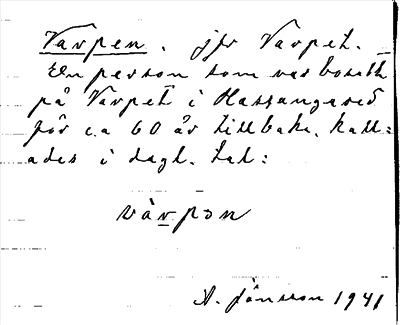 Varpen. jfr Varpet.
En person som var bosatt
på Varpet i Hassungared
för c:a 60 år tillbaka, kall=
ades i dagl. tal:
våvpən
A. Jönsson 1941